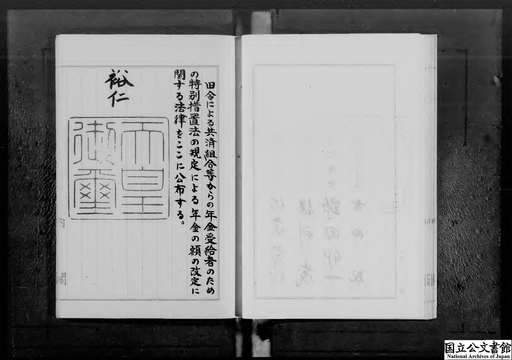 旧令による共済組合等からの年金受給者のため
の特別措置法の規定による年金の額の改定に
関する法律をここに公布する。
裕仁
天皇
御璽
国立公文書館
National Archives of Japan